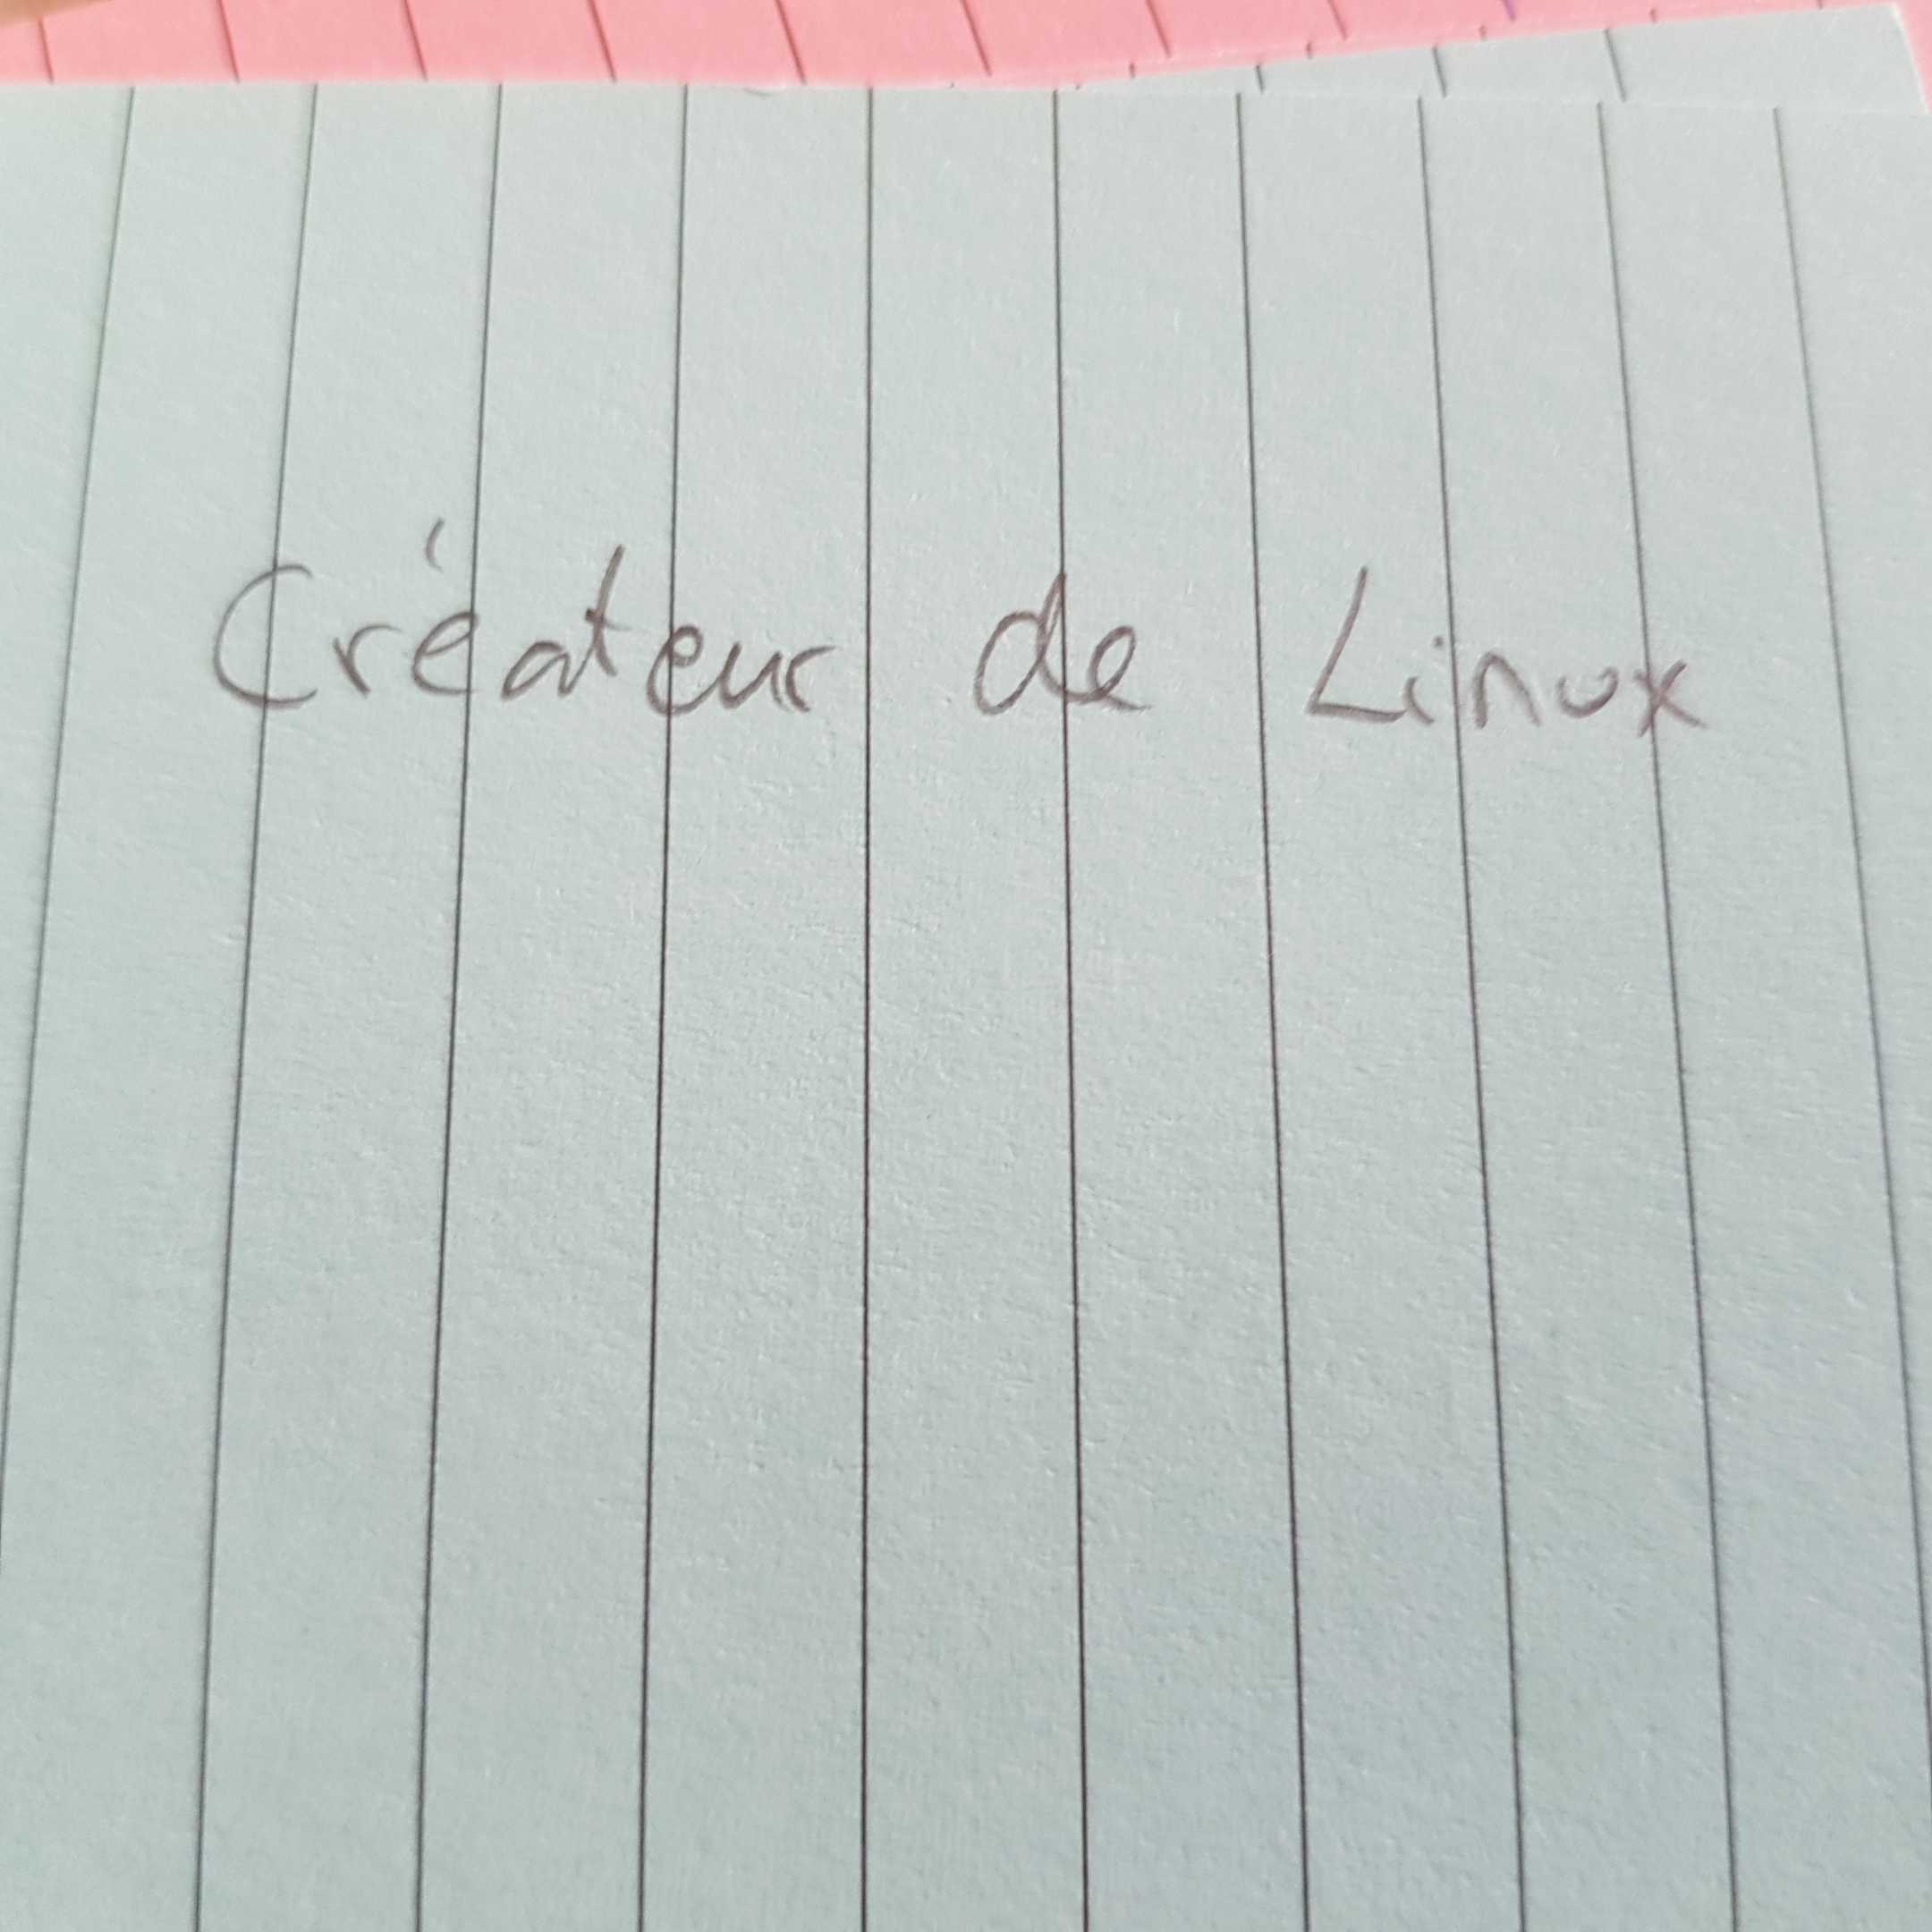 Créateur de Linux